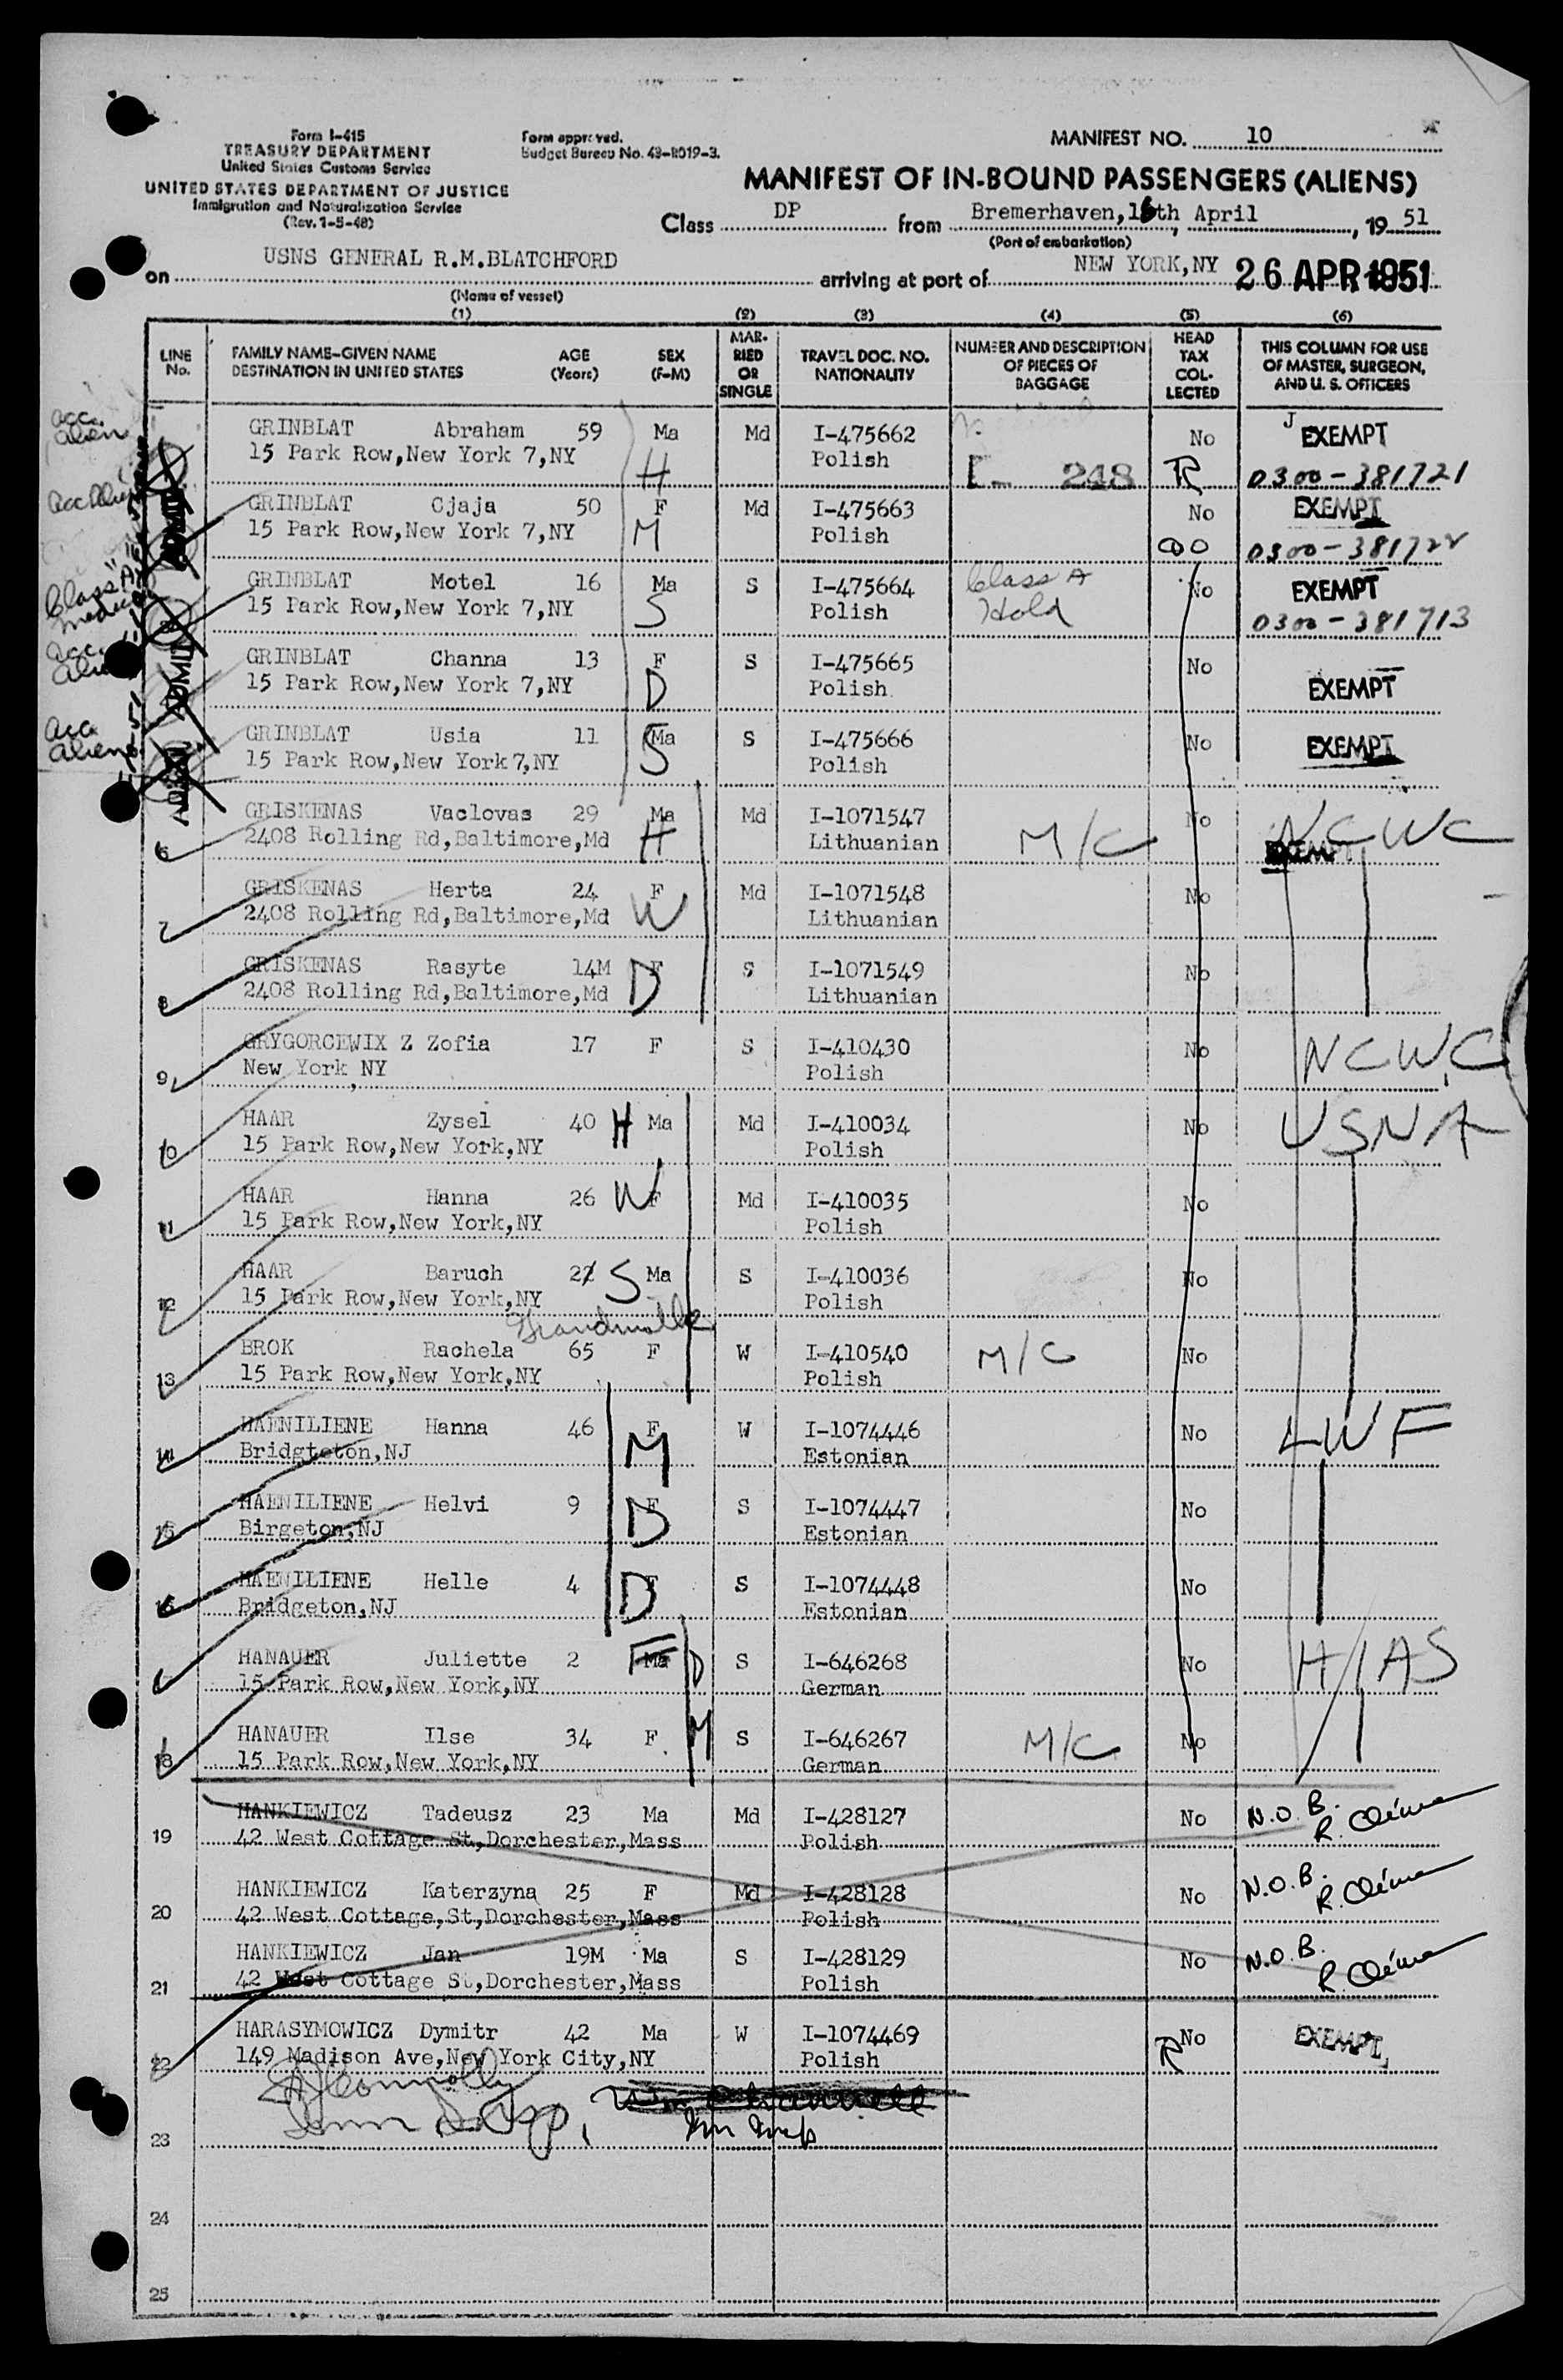 Form I-415
TREASURY DEPARTMENT
United States Customs Service
UNITED STATES DEPARTMENT OF JUSTICE
Immigration and Naturalization Service
(Rev. 1-5-48)
Form approved.
Budget Bureau No. 43-R019-3.
MANIFEST NO. 10
MANIFEST OF IN-BOUND PASSENGERS (ALIENS)
Class DP from Bremerhaven, 16th April, 19 51
(Port of embarkation)
on USNS GENERAL R.M.BLATCHFORD arriving at port of NEW YORK,NY 26 APR 1951
(Name of vessel)
(1) (2) (3) (4) (5) (6)
LINE No. FAMILY NAME-GIVEN NAME DESTINATION IN UNITED STATES AGE (Years) SEX (F-M) MARRIED OR SINGLE TRAVEL DOC. NO. NATIONALITY NUMBER AND DESCRIPTION OF PIECES OF BAGGAGE HEAD TAX COLLECTED THIS COLUMN FOR USE OF MASTER, SURGEON, AND U. S. OFFICERS
acc. alien GRINBLAT Abraham 59 Ma Md I-475662 No J EXEMPT
15 Park Row,New York 7,NY H Polish 248 R 0300-381721
GRINBLAT Cjaja 50 F Md I-475663 No EXEMPT
15 Park Row,New York 7,NY M Polish 0300-381722
Class "A" GRINBLAT Motel 16 Ma S I-475664 Class A No EXEMPT
15 Park Row,New York 7,NY S Polish Hold 0300-381713
acc. GRINBLAT Channa 13 F S I-475665 No
15 Park Row,New York 7,NY D Polish EXEMPT
acc. alien GRINBLAT Usia 11 Ma S I-475666 No EXEMPT
15 Park Row,New York 7,NY S Polish
GRISKENAS Vaclovas 29 Ma Md I-1071547 No NCWC
6 2408 Rolling Rd,Baltimore,Md H Lithuanian M/C EXEMPT
GRISKENAS Herta 24 F Md I-1071548 No
7 2408 Rolling Rd,Baltimore,Md W Lithuanian
GRISKENAS Rasyte 14M F S I-1071549 No
8 2408 Rolling Rd,Baltimore,Md D Lithuanian
GRYGORCEWIX Z Zofia 17 F S I-410430 No NCWC
9 New York, NY Polish
HAAR Zysel 40 H Ma Md I-410034 No USNA
10 15 Park Row,New York,NY Polish
HAAR Hanna 26 W F Md I-410035 No
11 15 Park Row,New York,NY Polish
HAAR Baruch 2 S Ma S I-410036 No
12 15 Park Row,New York,NY Polish
Grandmother
BROK Rachela 65 F W I-410540 M/C No
13 15 Park Row,New York,NY Polish
HAENILIENE Hanna 46 F W I-1074446 No LWF
14 Bridgteton,NJ M Estonian
HAENILIENE Helvi 9 F S I-1074447 No
15 Birgeton,NJ D Estonian
HAENILIENE Helle 4 F S I-1074448 No
16 Bridgeton,NJ D Estonian
HANAUER Juliette 2 F Ma D S I-646268 No HIAS
15 Park Row,New York,NY German
HANAUER Ilse 34 F M S I-646267 M/C No
18 15 Park Row,New York,NY German
HANKIEWICZ Tadeusz 23 Ma Md I-428127 No N.O.B.
19 42 West Cottage St,Dorchester,Mass Polish
HANKIEWICZ Katerzyna 25 F Md I-428128 No N.O.B.
20 42 West Cottage,St,Dorchester,Mass Polish
HANKIEWICZ Jan 19M Ma S I-428129 No N.O.B.
21 42 West Cottage St,Dorchester,Mass Polish
HARASYMOWICZ Dymitr 42 Ma W I-1074469 No EXEMPT
22 149 Madison Ave,New York City,NY Polish R
Connolly
Imm Insp
23
24
25